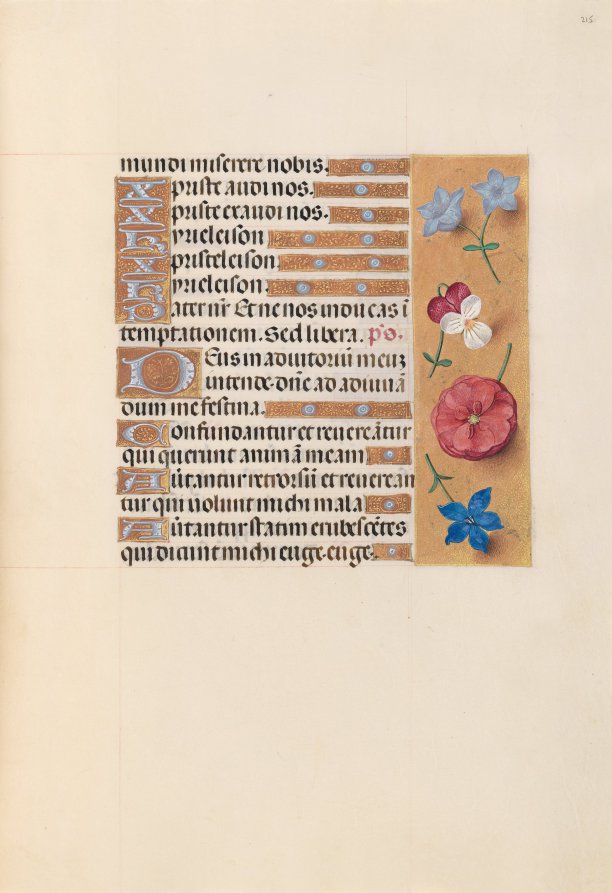 215
mundi miserere nobis.
Xpriste audi nos.
Xpriste exaudi nos.
Kyrieleison
Xpristeleison.
Kyrieleison.
Pater nr̄ Et ne nos inducas ī
temptationem. Sed libera. ps̄.
Deus in adiutoriū meuz
intende dn̄e ad adiuuā
dum me festina.
Confundantur et reuereātur
qui querunt animā meam
Auātantur retrorsū et reuereān
tur qui uolunt michi mala
Auātantur statim erubescētes
qui dicunt michi euge. euge.